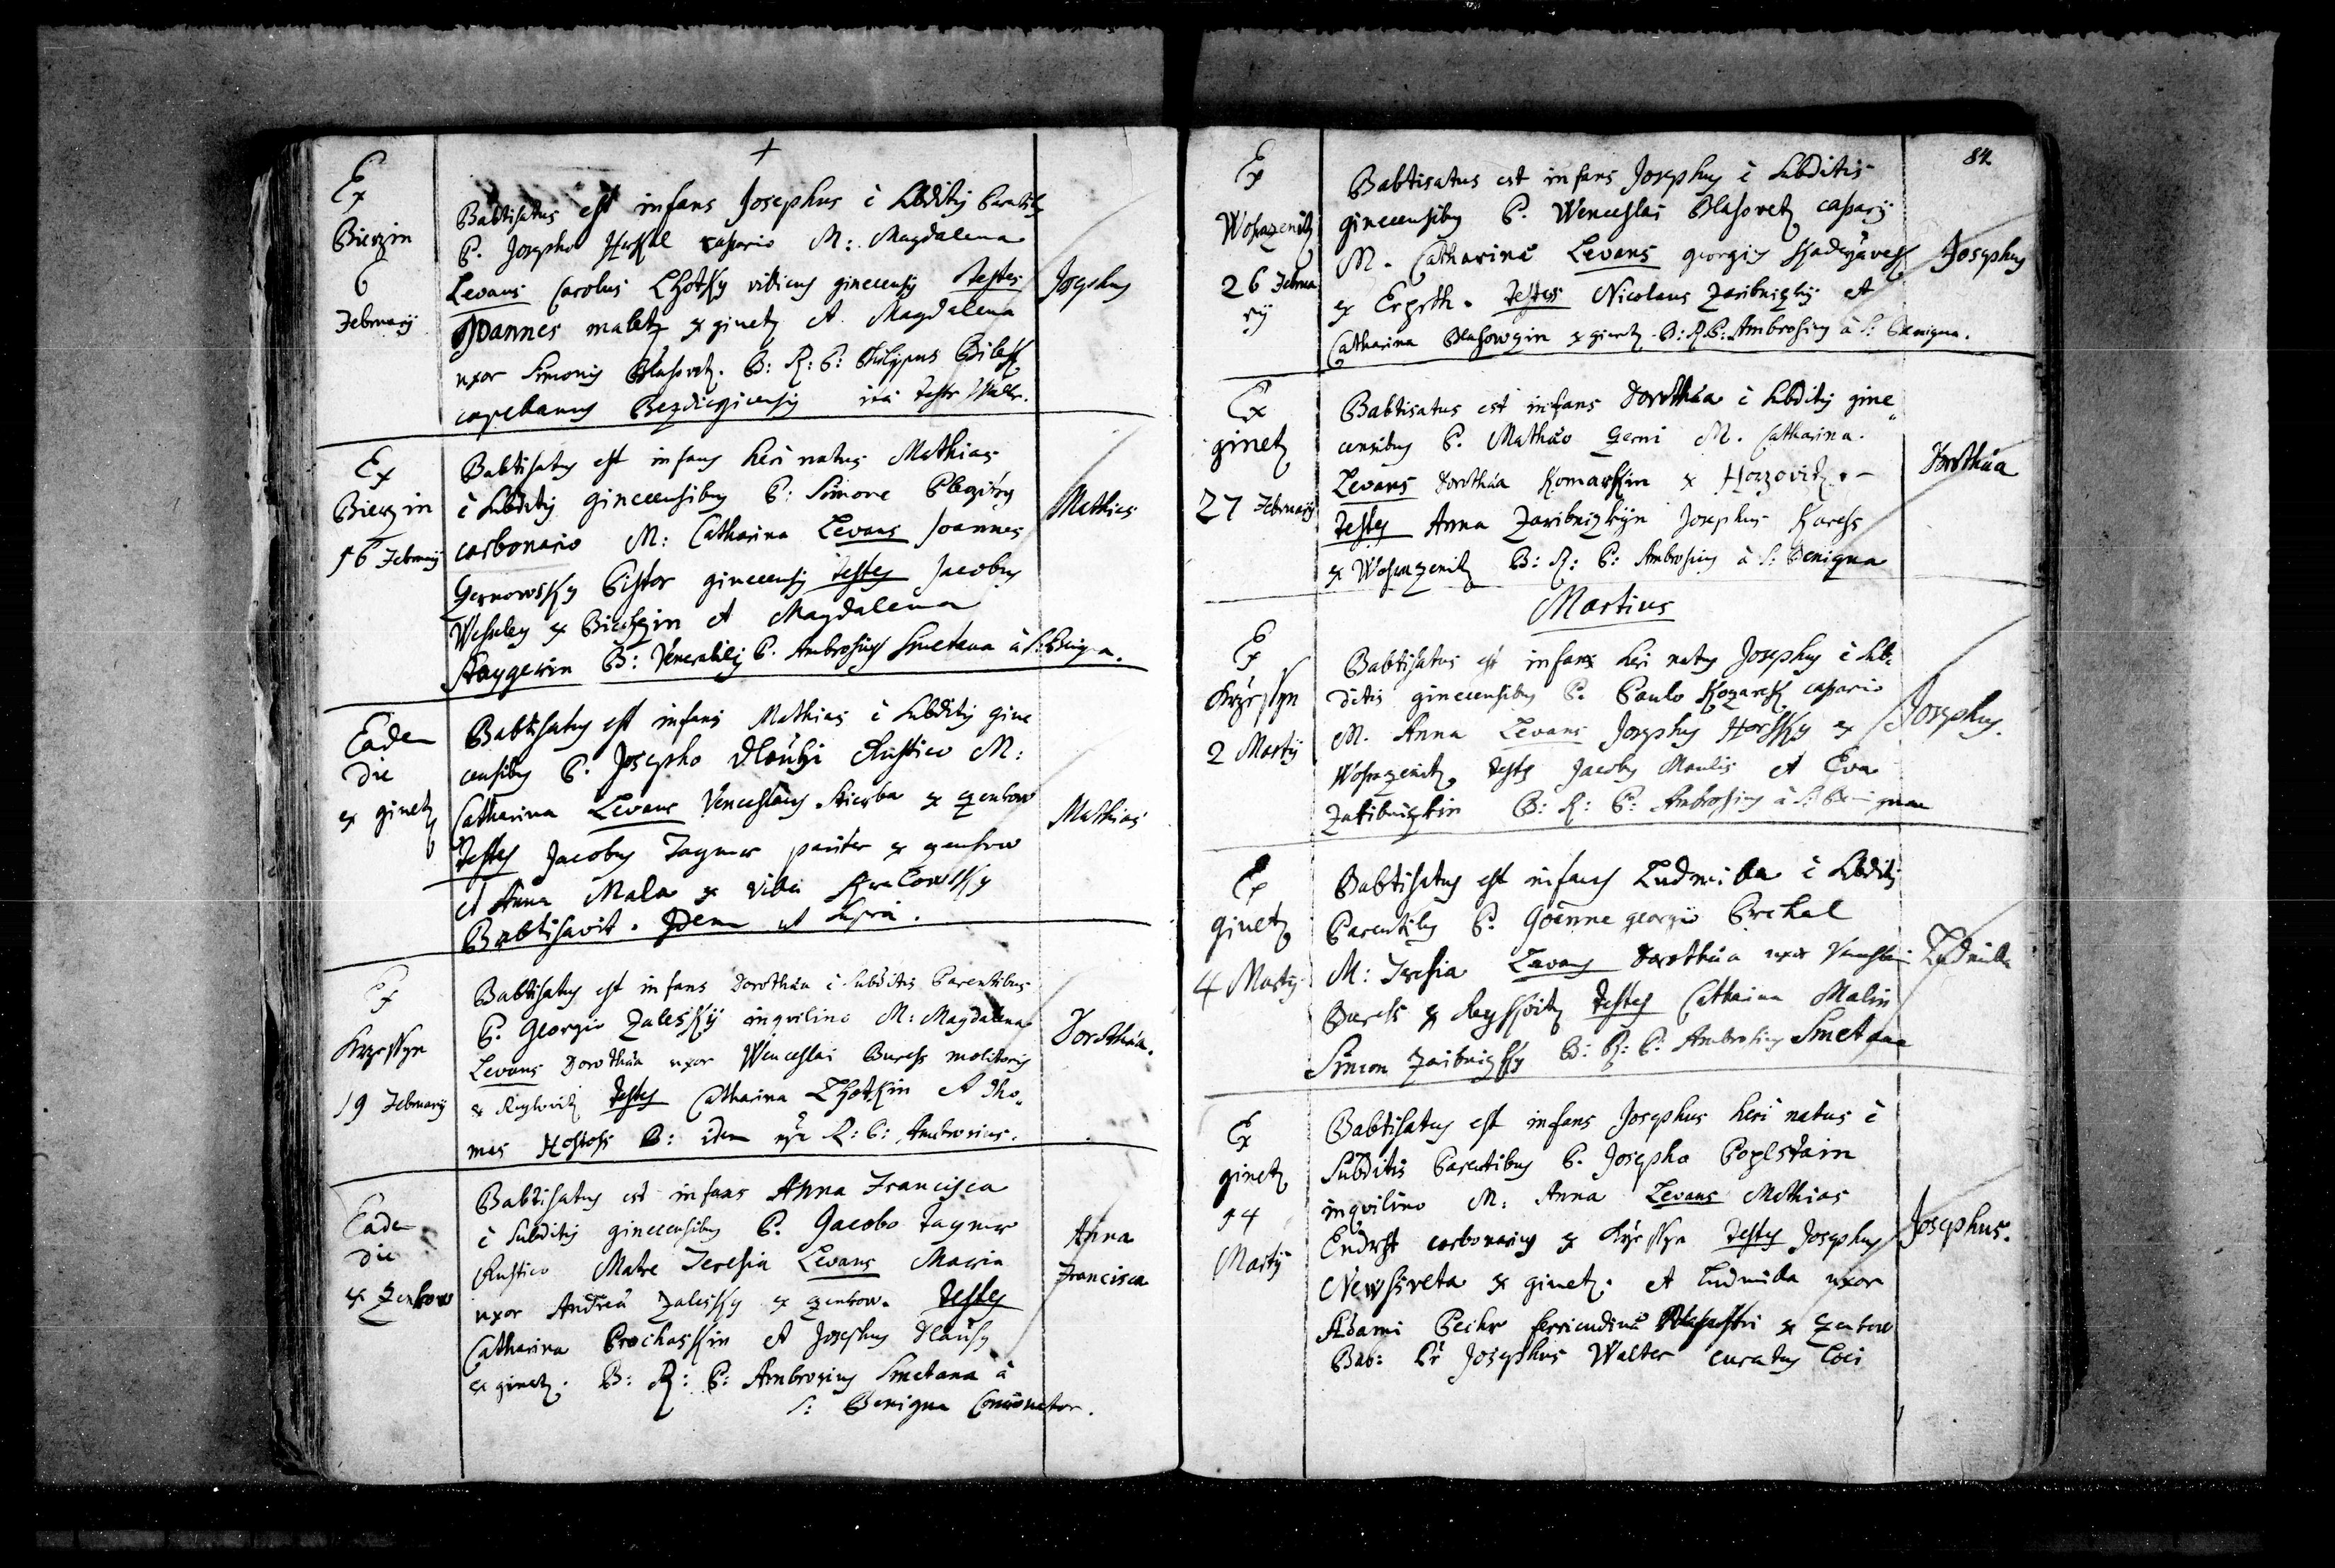 Ex
Bierzin
6
February
Babtisatus est infans Josephus è Subditis
P. Josepho casario M: Magdalena
Levans Carolus Lhotsky ginecensis Testes
Joannes maletz ex ginetz et Magdalena
uxor Simonis Blahovetz. B: R: P: Philippus Bilek
capelanus
Josephus
Ex
Bierzin
16 February
Babtisatus est infans heri natus Mathias
è Subditis ginecensibus P: Simone
carbonario M: Catharina Levans Joannes
Zernowsky Pistor ginecensis Testes Jacobus
Wesseley ex Bierzin et Magdalena
B: Venerabilis P. Ambrosius Smetana à S: Benigna.
Mathias
Eadem
die
ex ginetz
Babtisatus est infans Mathias è Subditis gine
censibus P. Josepho dlauhi Rustico M:
Catharina Levans Venceslaus Skierba ex zenkow
Testes Jacobus Taymer pariter ex zenkow
et Anna Mala ex
Babtisavit. Idem ut Supra.
Mathias
Ex
Krzesskyn
19 February
Babtisatus est infans Dorothea è Subditis Parentibus
P. Georgio Zalesky inqvilino M: Magdalena
Levans Dorothea uxor Wenceslai Buress molitoris
ex Testes Catharina Lhotkin et tho„
mas B: idem R: P: Ambrosius.
Dorothea.
Eadem
die
ex Zenkow
Babtisatus est infans Anna Francisca
è Subditis ginecensibus P. Jacobo Taymer
Rustico Matre Teresia Levans Maria
uxor Andreae Zalesky ex zenkow. Testes
Catharina Prochaskin et Josephus dlauhy
ex ginetz. B: R: P: Ambrosius Smetana à
S: Benigna Concionator.
Anna
Francisca
84
Ex
Wosrazenitz
26 Februa
ry
Babtisatus est infans Josephus è Subditis
ginecensibus P. Wenceslai Blahovetz casary
M. Catharina Levans georgius
ex Testes Nicolaus Zaribnizky et
Catharina Blahowzin ex ginetz. B: R.P: Ambrosius à S: Benigna.
Josephus
Ex
ginetz
27 February
Babtisatus est infans Dorothea è Subditis gine„
censibus P. Mathaeo Zerni M. Catharina.
Levans Dorothea Komarkin ex Horzovitz. –
Testes Anna Zaribnizkyn Josephus Karess
ex Wosrazenitz B: R: P: Ambrosius à S: Benigna
Dorothea
Martius
Ex
Krzesskyn
2 Marty
Babtisatus est infans heri natus Josephus è Sub„
ditis ginecensibus P. Paulo Kozarek casario
M. Anna Levans Josephus Horsky ex
Wosrazenitz. Testes Jacobus Maulis et Eva
Zaribnizkin B: R: P: Ambrosius à S: Benigna
Josephus.
Ex
ginetz
4 Marty
Babtisatus est infans Ludmilla è Subditis
Parentibus P. Joanne georgio Brchal
M: Teresia Levans Dorothea uxor Venceslai
Buress ex Testes Catharina Malin
Simon Zaribnizky B: R: P: Ambrosius Smetana
Ludmilla
Ex
ginetz
14
Marty
Babtisatus est infans Josephus heri natus è
Subditis Parentibus P. Josepho Poplstain
inqvilino M: Anna Levans Mathias
Endrst carbonarius ex Testes Josephus
Newsireta ex ginetz. et Ludmilla uxor
Adami Peikr ex Zenkow
Bab: Josephus Walter curatus Loci
Josephus.